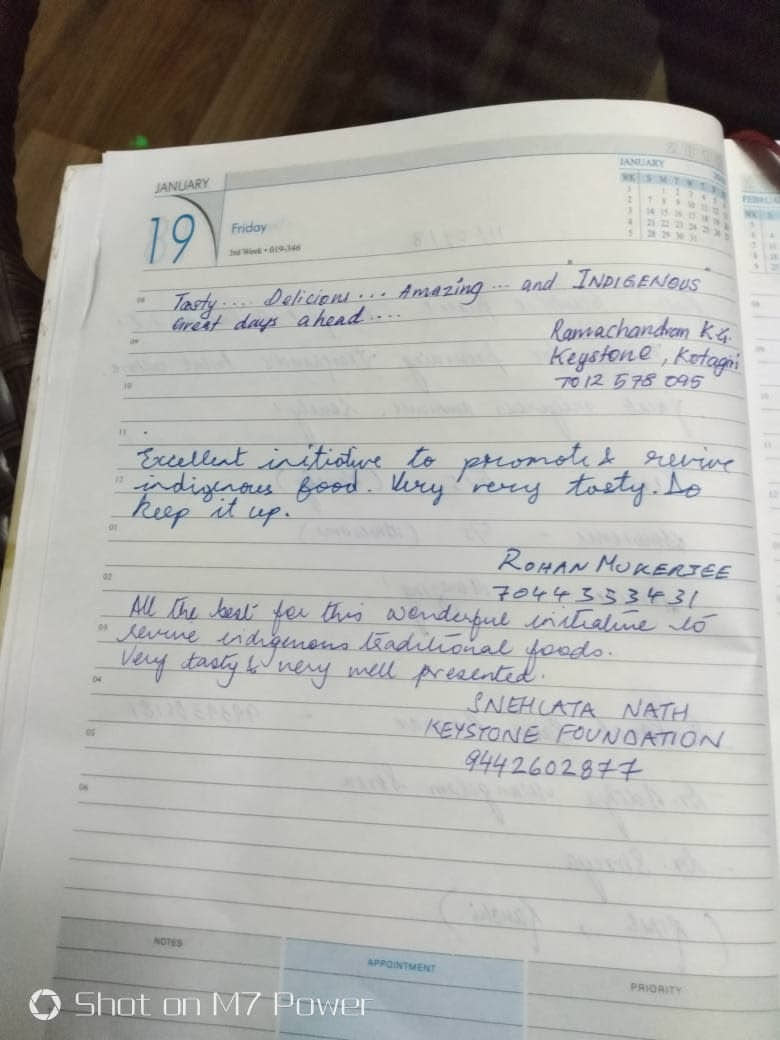 JANUARY
19
Friday
3rd Week • 019-346
JANUARY
WK S M T W T F S
1 1 2 3 4 5 6
2 7 8 9 10 11 12
3 14 15 16 17 18 19
4 21 22 23 24 25 26
5 28 29 30 31
08
Tasty .... Delicious ... Amazing ... and INDIGENOUS
Great days ahead ....
09
Ramachandran K.G.
Keystone, Kotagiri
10
7012 578 095
11
Excellent initiative to promote & revive
12
indigenous food. Very very tasty. Do
keep it up.
01
ROHAN MUKERJEE
02
7044353431
All the best for this wonderful initiative to
03
revive indigenous traditional foods.
Very tasty & very well presented.
04
SNEHLATA NATH
KEYSTONE FOUNDATION
05
9442602877
06
NOTES
APPOINTMENT
PRIORITY
Shot on M7 Power